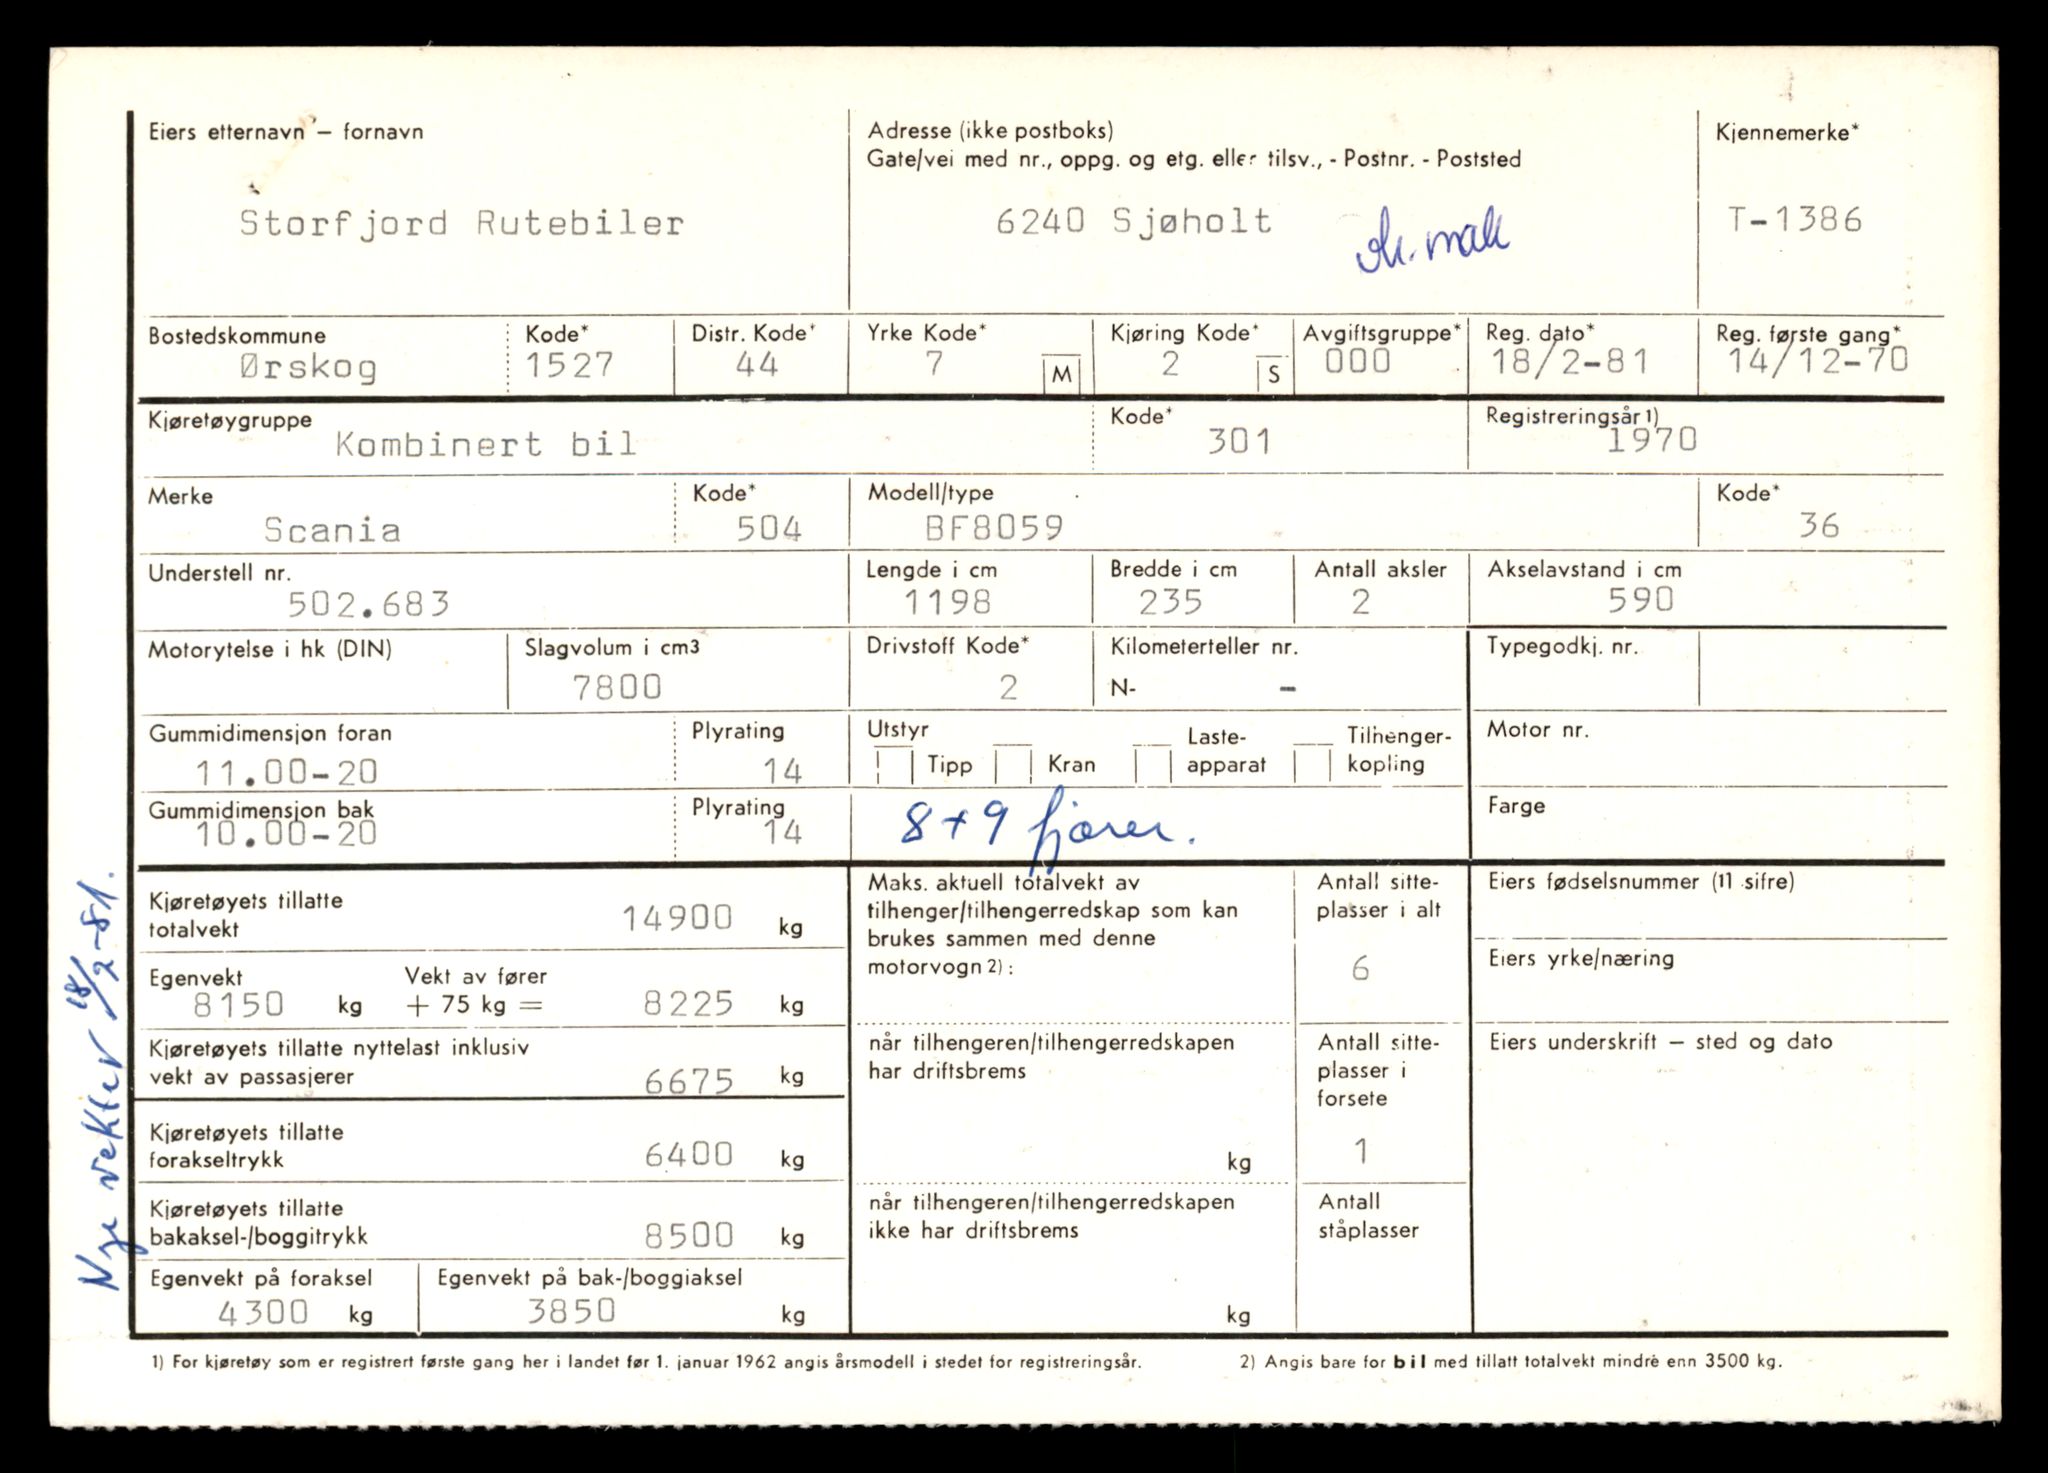 Eiers etternavn – fornavn
Storfjord Rutebiler
Adresse (ikke postboks)
Gate/vei med nr., oppg. og etg. eller tilsv., - Postnr. - Poststed
6240 Sjøholt
Kjennemerke*
T-1386
Bostedskommune
Ørskog
Kode*
1527
Distr. Kode*
44
Yrke Kode*
7
M
Kjøring Kode*
2
S
Avgiftsgruppe*
000
Reg. dato*
18/2-81
Reg. første gang*
14/12-70
Kjøretøygruppe
Kombinert bil
Kode*
301
Registreringsår 1)
1970
Merke
Scania
Kode*
504
Modell/type
BF8059
Kode*
36
Understell nr.
502.683
Lengde i cm
1198
Bredde i cm
235
Antall aksler
2
Akselavstand i cm
590
Motorytelse i hk (DIN)
Slagvolum i cm3
7800
Drivstoff Kode*
2
Kilometerteller nr.
N- -
Typegodkj. nr.
Gummidimensjon foran
11.00-20
Plyrating
14
Utstyr
Tipp
Kran
Laste-
apparat
Tilhenger-
kopling
Motor nr.
Gummidimensjon bak
10.00-20
Plyrating
14
8 + 9 fjærer.
Farge
Kjøretøyets tillatte
totalvekt
14900 kg
Egenvekt
8150 kg
Vekt av fører
+ 75 kg =
8225 kg
Kjøretøyets tillatte nyttelast inklusiv
vekt av passasjerer
6675 kg
Kjøretøyets tillatte
forakseltrykk
6400 kg
Kjøretøyets tillatte
bakaksel-/boggitrykk
8500 kg
Egenvekt på foraksel
4300 kg
Egenvekt på bak-/boggiaksel
3850 kg
Maks. aktuell totalvekt av
tilhenger/tilhengerredskap som kan
brukes sammen med denne
motorvogn 2) :
når tilhengeren/tilhengerredskapen
har driftsbrems
kg
når tilhengeren/tilhengerredskapen
ikke har driftsbrems
kg
Antall sitte-
plasser i alt
6
Antall sitte-
plasser i
forsete
1
Antall
ståplasser
Eiers fødselsnummer (11 sifre)
Eiers yrke/næring
Eiers underskrift – sted og dato
Nye vekter 18/2-81.
1) For kjøretøy som er registrert første gang her i landet før 1. januar 1962 angis årsmodell i stedet for registreringsår.
2) Angis bare for bil med tillatt totalvekt mindre enn 3500 kg.